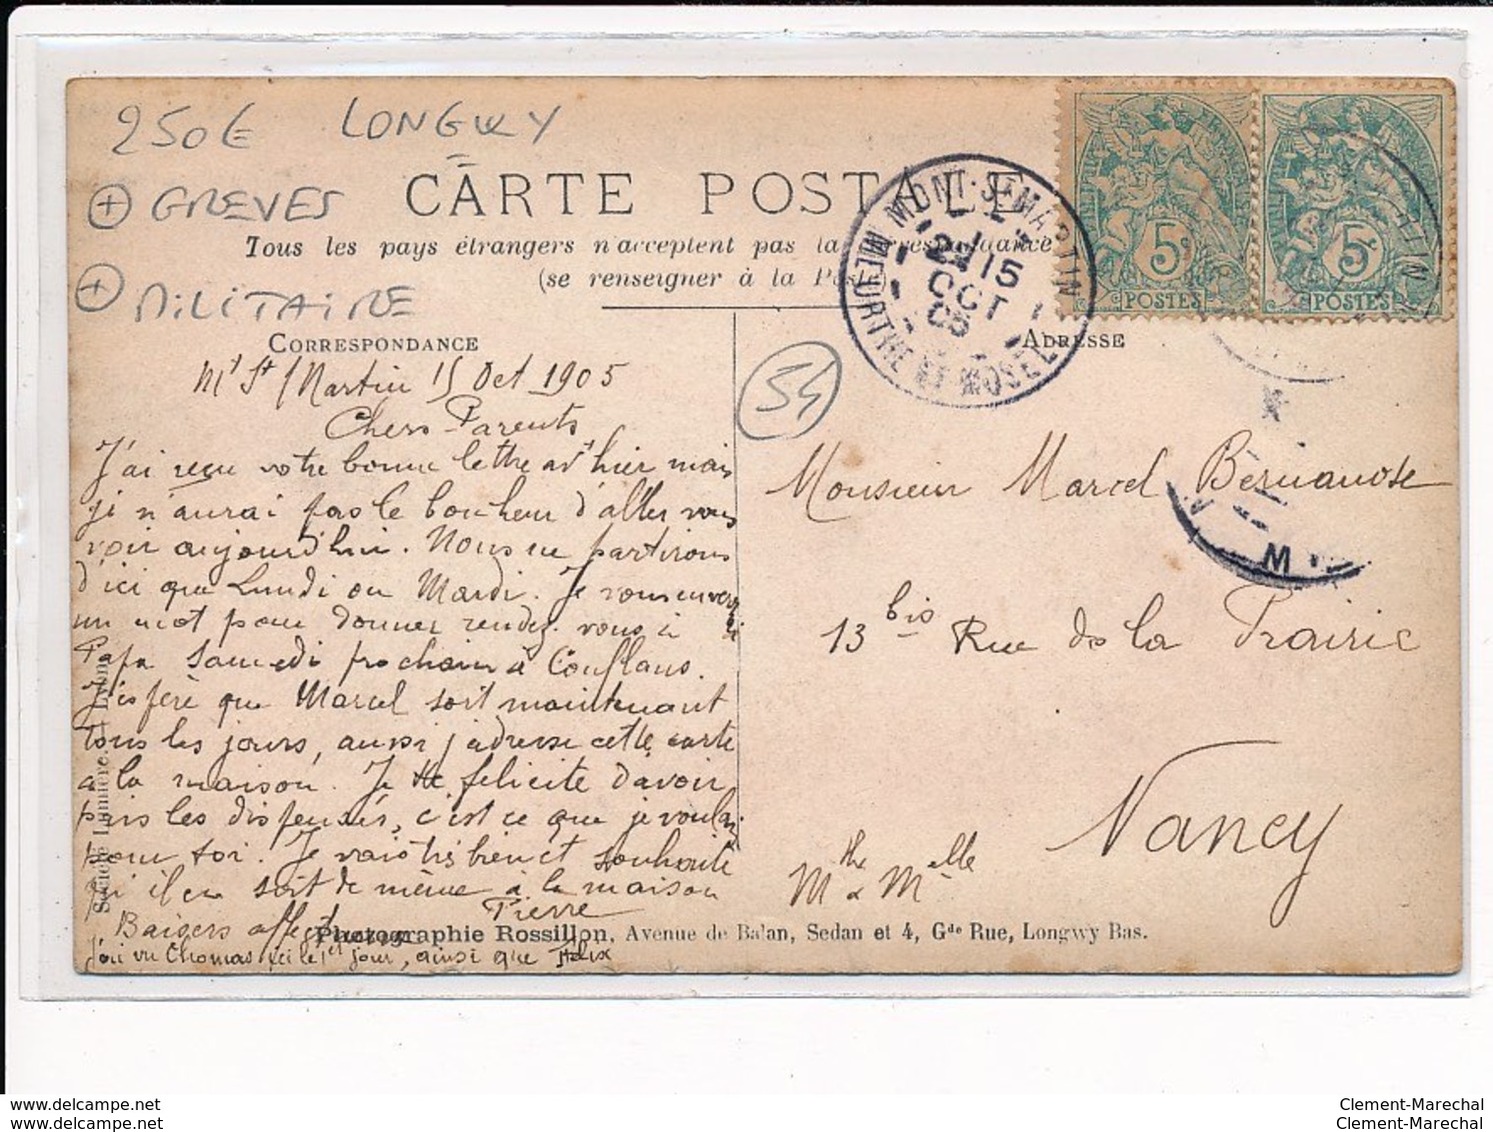 250€ LONGWY
+ GREVES
+ MILITAIRE
CARTE POSTALE
Tous les pays étrangers n'acceptent pas la correspondance
(se renseigner à la Poste)
CORRESPONDANCE
ADRESSE
MONT-ST-MARTIN
MEURTHE ET MOSELLE
15
OCT
05
5c
POSTES
5c
POSTES
54
Mt St Martin 15 Oct 1905
Chers Parents
J'ai reçu votre bonne lettre avt hier mais
je n'aurai pas le bonheur d'aller vous
voir aujourd'hui. Nous ne partirons
d'ici que Lundi ou Mardi. Je vous enverrai
un mot pour donner rendez-vous à
Papa Samedi prochain à Conflans.
J'espère que Marcel soit maintenant
tous les jours, aussi j'adresse cette carte
à la maison. Je te félicite d'avoir
pris les dispensés, c'est ce que je voulais
pour toi. Je vais très bien et souhaite
qu'il en soit de même à la maison
Pierre
Baisers affectueux
J'ai vu Thomas ici le 1er jour, ainsi que Félix
Monsieur Marcel Bernanose
13 bis Rue de la Prairie
Nancy
Mthe & Melle
Société Lumière. Lyon
Photographie Rossillon, Avenue de Balan, Sedan et 4, Gde Rue, Longwy Bas.
www.delcampe.net
www.delcampe.net
Clement-Marechal
Clement-Marechal